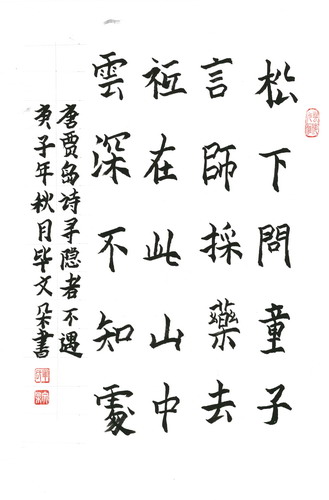 松下問童子
言師採藥去
祗在此山中
雲深不知處
唐賈島诗寻隐者不遇
庚子年秋月毕文朵書